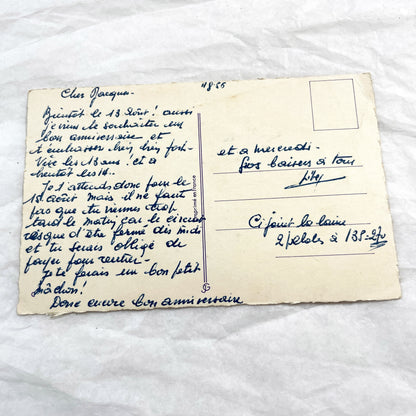 4.8.66
Cher Jacques.
Bientôt le 13 Août! aussi
je viens te souhaiter un
bon anniversaire et
t'embrasser bien bien fort.
Vive les 13 ans! et à
bientôt les 14..
Je t'attends donc pour le
15 août mais il ne faut
pas que tu viennes trop
tard le matin car le circuit
risque d'être fermé dès midi
et tu serais obligé de
payer pour rentrer.
Je te ferais un bon petit
gâteau!
Donc encore bon anniversaire
et à mercredi.
Gros baisers à tous
Ci joint la laine
2 pelotes à 135=270